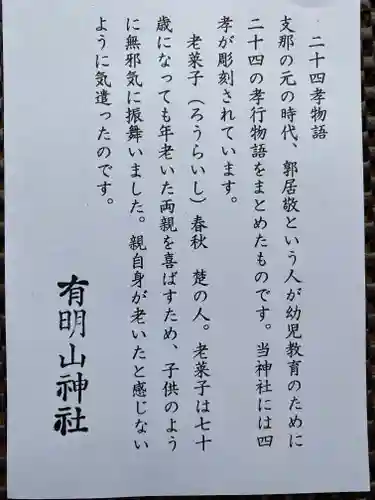 二十四孝物語
支那の元の時代、郭居敬という人が幼児教育のために
二十四の孝行物語をまとめたものです。当神社には四
孝が彫刻されています。
老菜子（ろうらいし）春秋 楚の人。老菜子は七十
歳になっても年老いた両親を喜ばすため、子供のよう
に無邪気に振舞いました。親自身が老いたと感じない
ように気遣ったのです。
有明山神社